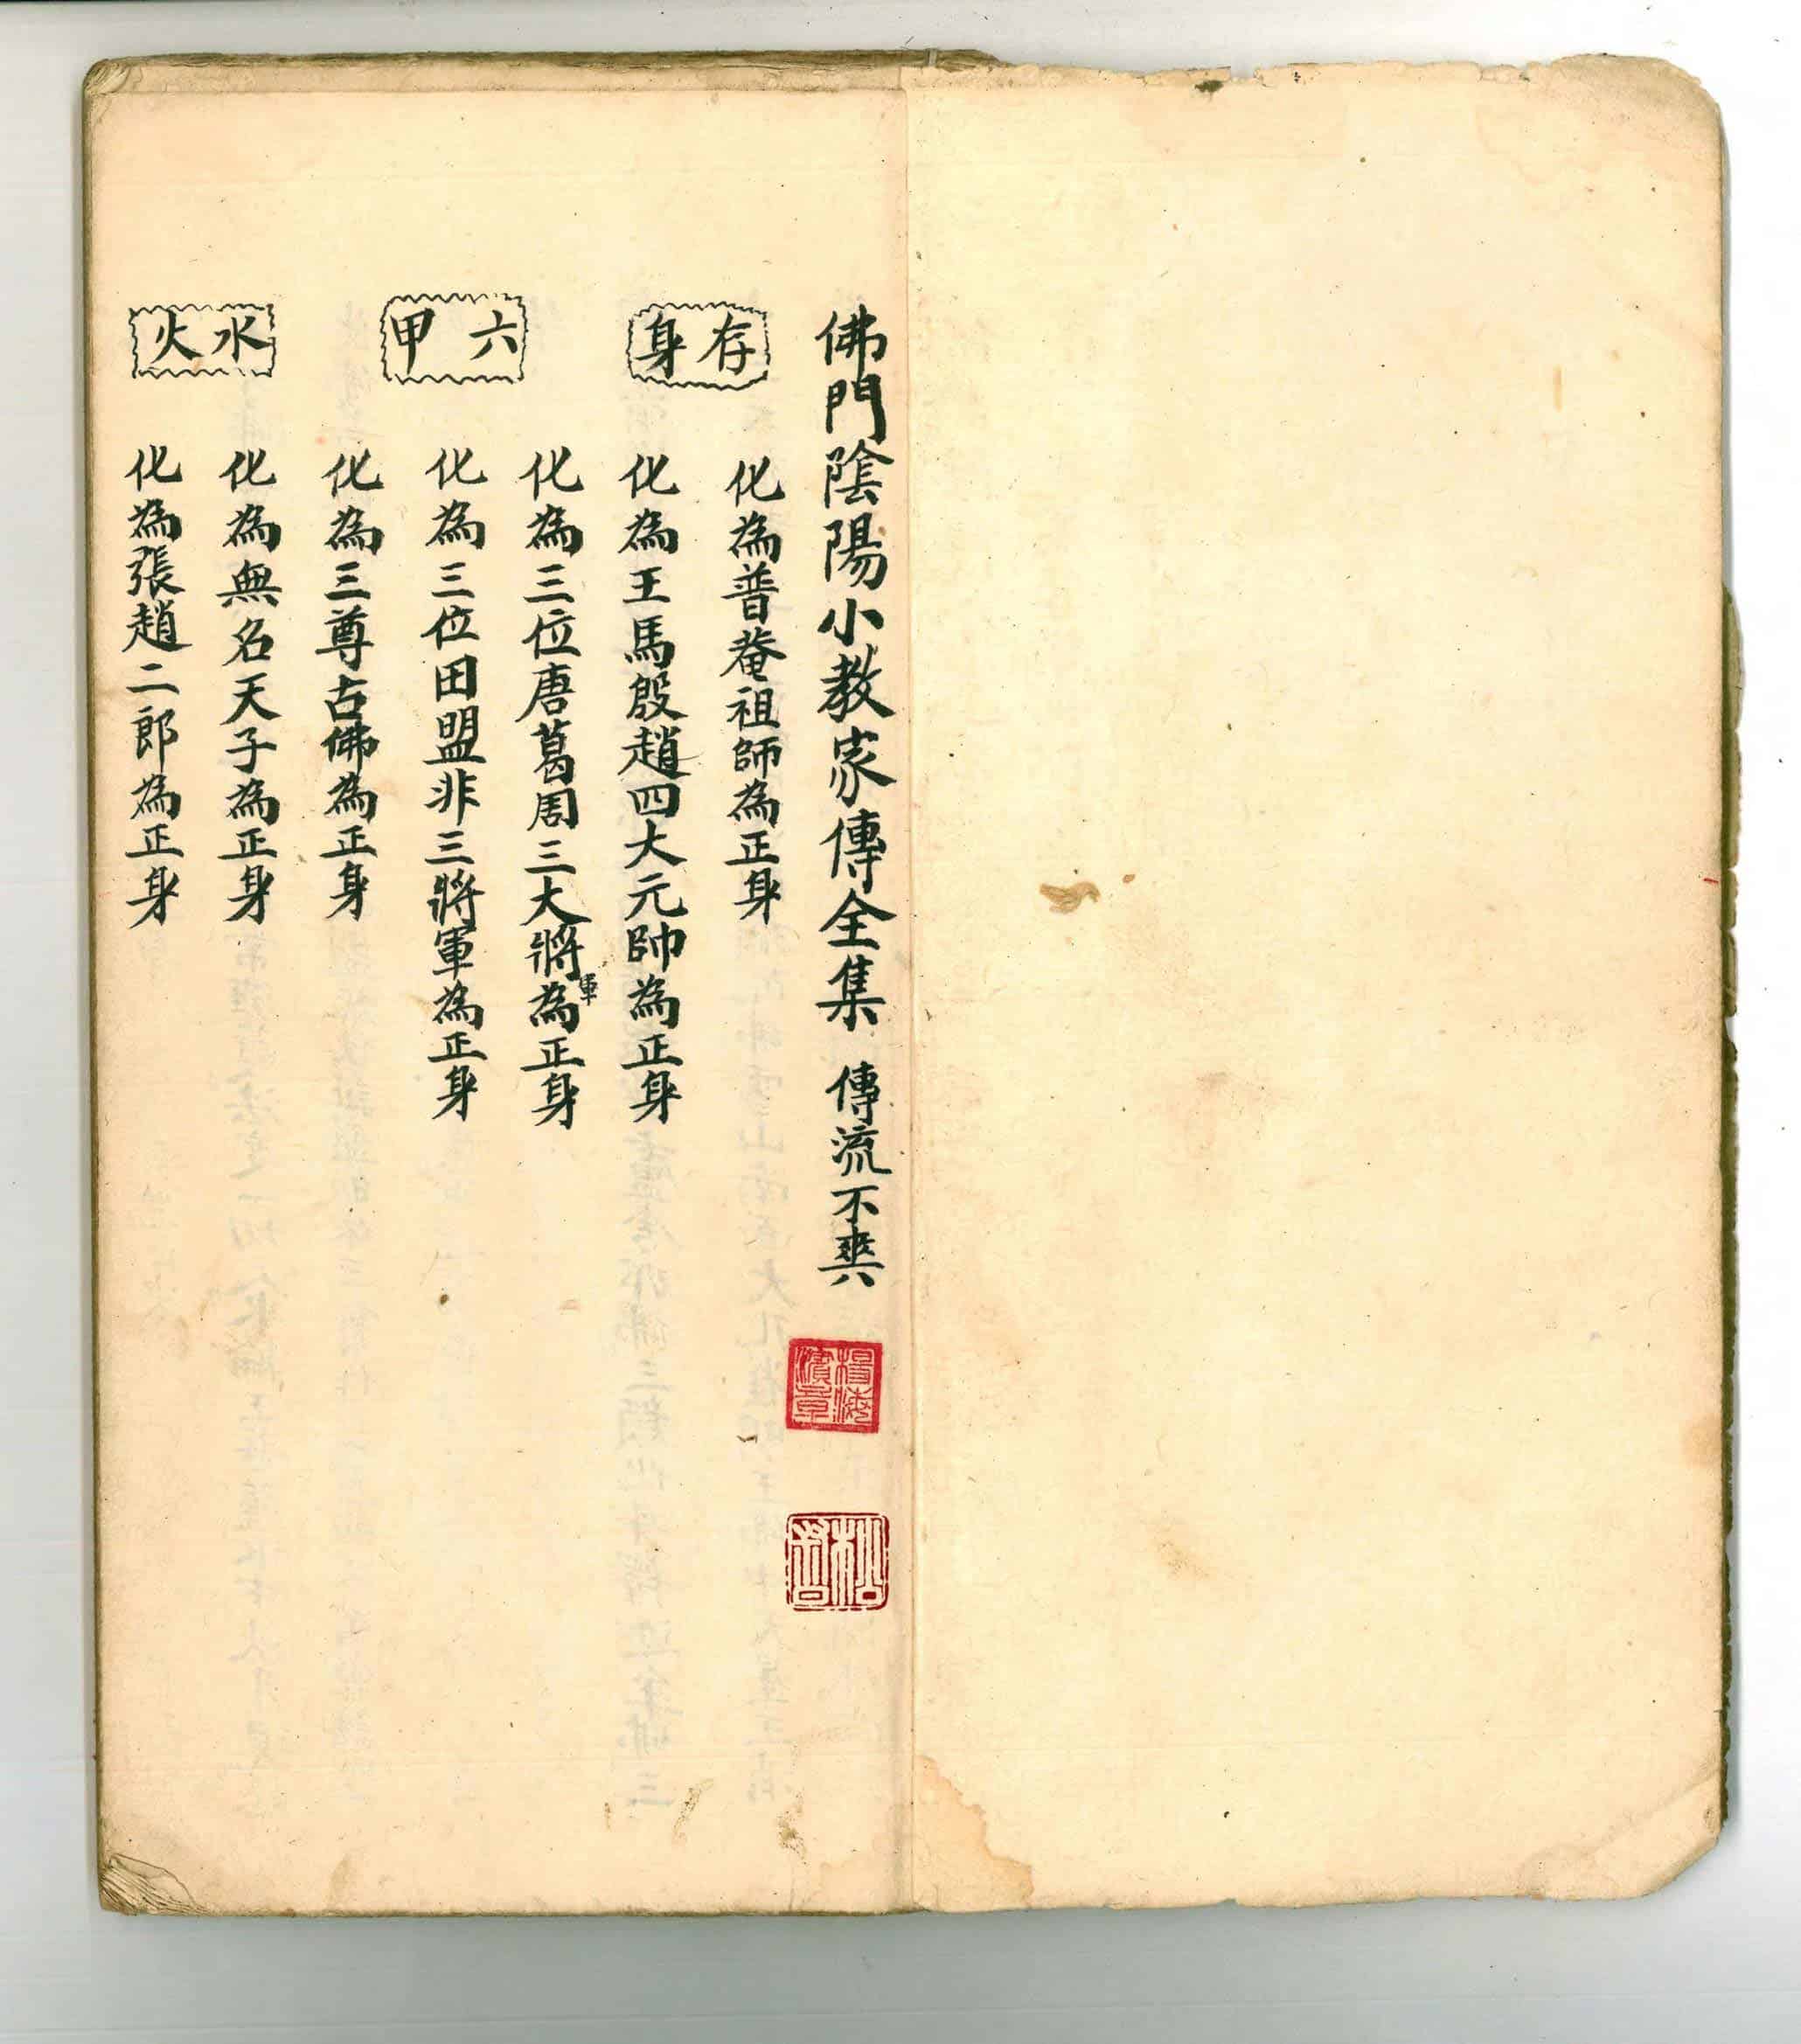 佛門陰陽小教家傳全集 傳流不爽
楊海
濱章
存身
化為普菴祖師為正身
化為王馬殷趙四大元帥為正身
六甲
化為三位唐葛周三大將軍為正身
化為三位田盟非三將軍為正身
化為三尊古佛為正身
水火
化為無名天子為正身
化為張趙二郎為正身